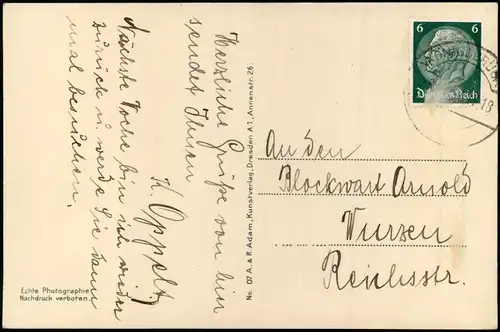 Herzliche Grüße von hier
sendet Ihnen
K. Oppelt.
Nächste Woche bin ich wieder
zurück u. werde Sie dann
mal besuchen.
Echte Photographie
Nachdruck verboten
No. 07 A. & R. Adam, Kunstverlag, Dresden A 1, Annenstr. 26.
6 6
Deutsches Reich
An den
Blockwart Arnold
Wurzen
Reichsstr.